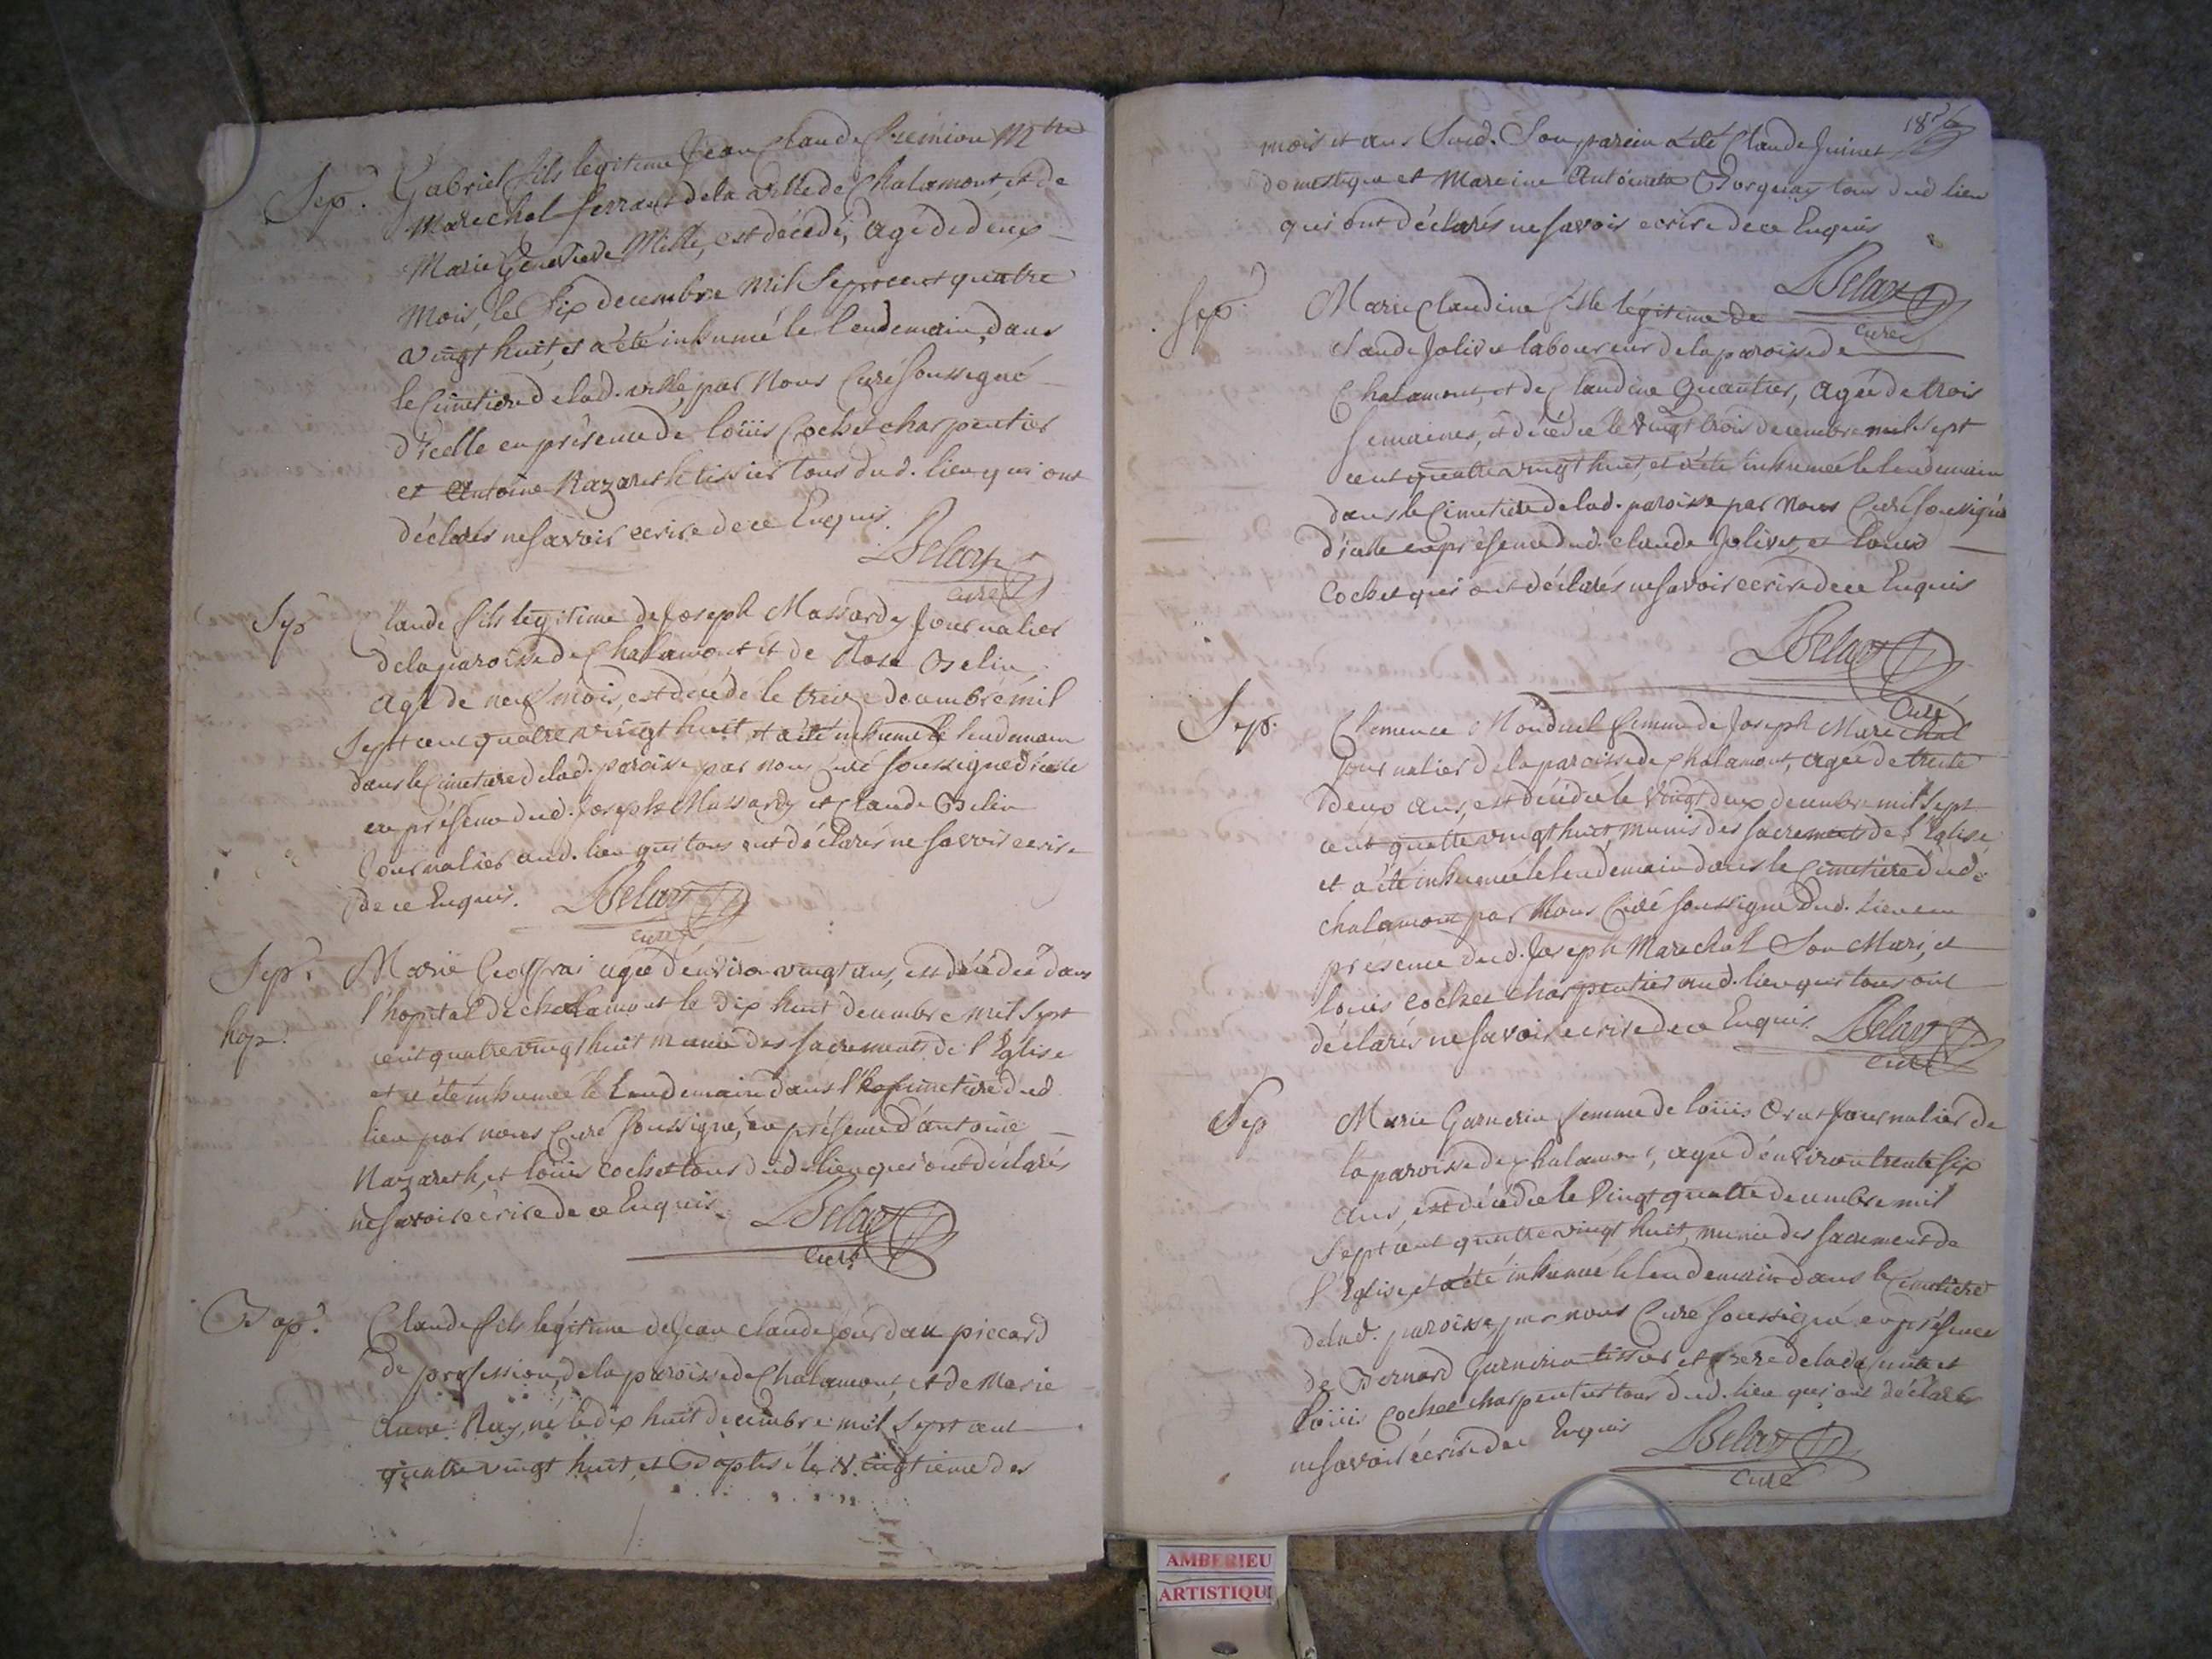 Sep.
Gabriel fils legitime Jean Claude Frémion Mtre
Marechal ferrant de la ville de Chalamont, et de
Marie Genevieve Mille, est décédé, agé de deux
mois, le Six decembre mil Sept cent quatre
vingt huit, et a été inhumé le lendemain, dans
le Cimetiere de lad. ville, par Nous Curé soussigné
d'icelle en présence de loüis Cochet charpentier
et Antoine Nazareth tissier tous dud. lieu qui ont
déclarés ne savoir ecrire de ce Enquis.
curé
Sep
Claude fils legitime de Joseph Massardy Journalier
de la paroisse de Chalamont et de Rose
agé de neuf mois, est décédé le treize decembre mil
Sept cent quatre vingt huit, et a été inhumé le lendemain
dans le Cimetiere de lad. paroisse par nous Curé soussigné d'icelle
en présence dud. Joseph Massardy et Claude
Journalier aud. lieu qui tous ont déclarés ne savoir ecrire
de ce Enquis.
curé
Sep.
hop.
Marie Geoffrai agée d'environ vingt ans, est décédée dans
l'hopital de chalamont le dix huit decembre mil Sept
cent quatre vingt huit munie des sacrements de l'Eglise
et a été inhumée le Lendemain dans l' cimetiere dud
lieu par nous Curé soussigné, en présence d'antoine
Nazareth, et loüis cochet tous dud. lieu qui ont déclarés
ne savoir ecrire de ce Enquis.
Curé
Bap.
Claude fils légitime de Jean claude Jourdan piccard
de profession, de la paroisse de Chalamont, et de Marie
Anne Ray, né le dix huit decembre mil Sept cent
quatre vingt huit, et Baptisé le vingtieme des
mois et an Susd. Son parein a été Claude Juinet
domestique et Mareine Antoinette tous dud lieu
qui ont déclarés ne savoir ecrire de ce Enquis
curé
Sep.
Marie Claudine fille légitime de
Claude Jolivet laboureur de la paroisse de
Chalamont, et de Claudine Quantier, agée de trois
semaines, est décédée le vingt trois decembre mil Sept
cent quatre vingt huit, et a été inhumée le lendemain
dans le Cimetiere de lad. paroisse par Nous Curé soussigné
d'icelle en présence dud. Claude Jolivet, et Louis
Cochet qui ont déclarés ne savoir ecrire de ce Enquis
Curé
Sep.
Clemence femme de Joseph Maréchal
Journalier de la paroisse de Chalamont, agée de trente
deux ans, est décédée le vingt deux decembre mil Sept
cent quatre vingt huit, munie des sacrements de l'Eglise
et a été inhumée le lendemain dans le Cimetiere dud.
chalamont par Nous Curé soussigné dud. lieu en
presence dud. Joseph Marechal Son Mari, et
loüis cochet charpentier aud. lieu qui tous ont
déclarés ne savoir ecrire de ce Enquis.
curé
Sep
Marie Garnerin femme de loüis Journalier de
la paroisse de Chalamont, agée d'environ trente six
ans, est décédée le vingt quatre decembre mil
Sept cent quatre vingt huit, munie des sacrement de
l'Eglise, et a été inhumée le lendemain dans le Cimetiere
de lad. paroisse, par nous Curé soussigné en présence
de Bernard Garnerin tissier et frere de la défunte et
loüis Cochet charpentier tous dud. lieu qui ont déclarés
ne savoir écrire de ce Enquis
Curé
AMBERIEU
ARTISTIQU